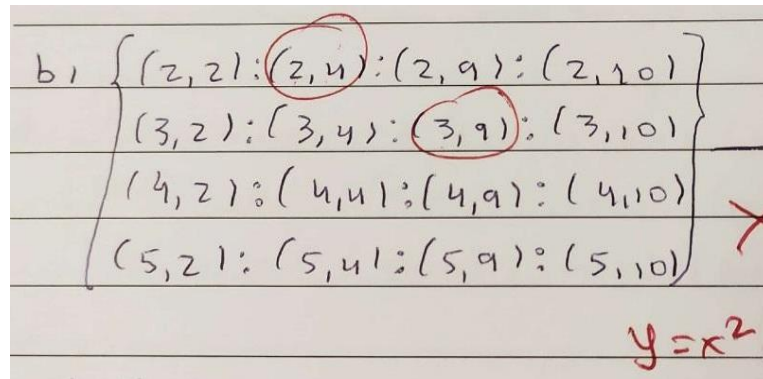 b, {(2,2):(2,4):(2,9):(2,10)
(3,2):(3,4):(3,9):(3,10)
(4,2):(4,4):(4,9):(4,10)
(5,2):(5,4):(5,9):(5,10)}
y=x²